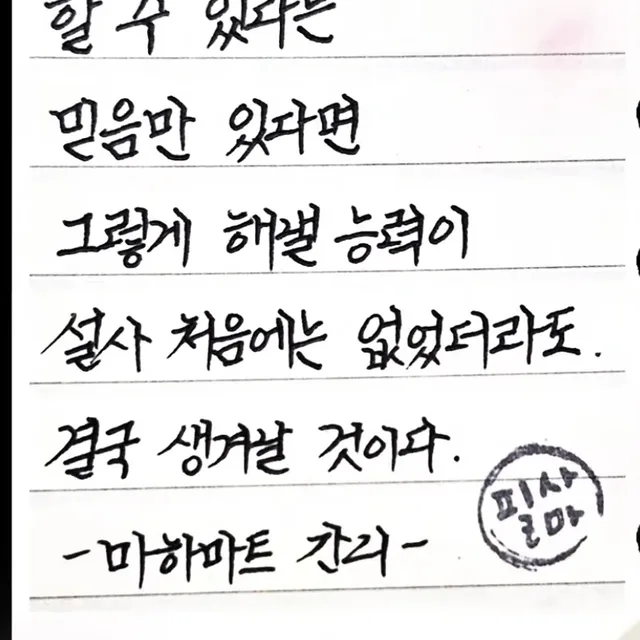 할 수 있다는
믿음만 있다면
그렇게 해낼 능력이
설사 처음에는 없었더라도.
결국 생겨날 것이다.
-마하마트 간디-
필사
르마